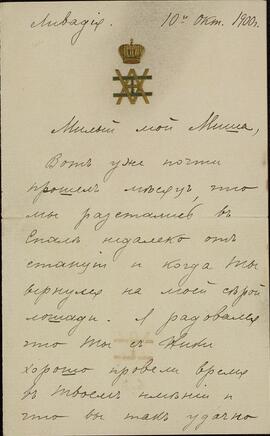 Ливадія. 10го Окт. 1900г.
Милый мой Миша,
Вотъ уже почти
прошелъ мѣсяцъ, что
мы разстались въ
Спалѣ недалеко отъ
станціи и когда Ты
вернулся на моей сѣрой
лошади. Я радовался
что Ты съ Ники
хорошо провели время
въ Твоемъ имѣніи и
что вы такъ удачно